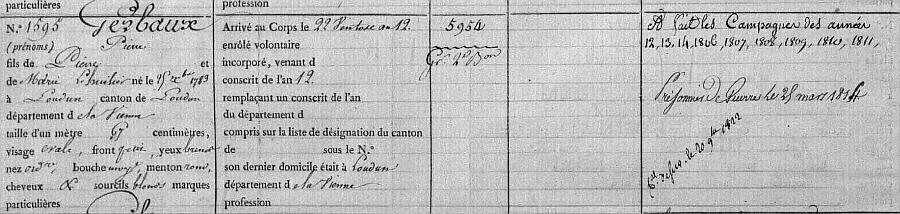 particulières
profession
particulières
N.° 1595 Gerbaux
(prénoms) Pierre
fils de Pierre et
de Marie né le 25 xbre 1783
à Loudun canton de Loudun
département d e la Vienne
taille d'un mètre 67 centimètres,
visage ovale, front petit, yeux bruns
nez ordre, bouche moye, menton rond,
cheveux & sourcils blonds marques
particulières
Arrivé au Corps le 22 Ventose an 12
enrôlé volontaire
incorporé, venant d
conscrit de l'an 12
remplaçant un conscrit de l'an
du département d
compris sur la liste de désignation du canton
de sous le N.°
son dernier domicile était à Loudun
département d e la Vienne
profession
5954
Gr. 2e Bon
A fait les Campagnes des années
12, 13, 14, 1806, 1807, 1808, 1809, 1810, 1811,
Prisonnier de Guerre le 25 mars 1814
le 20 9bre 1822